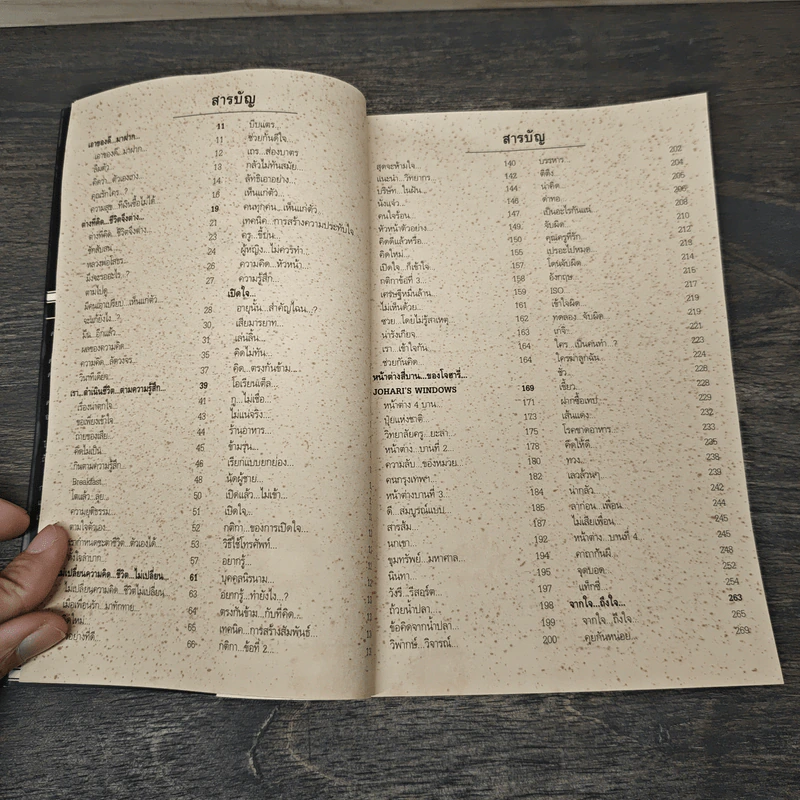 สารบัญ
เอาของดี...มาฝาก... 11
เอาของดี...มาฝาก... 11
ลืมตัว... 12
คิดว่า...ตัวเองเก่ง... 13
คุณรักใคร...? 14
ความสุข...ที่เงินซื้อไม่ได้ 16
ต่างที่คิด...ชีวิตจึงต่าง... 19
ต่างที่คิด...ชีวิตจึงต่าง... 21
ขัดสับสน... 23
หลวงพ่อโสธร... 24
มึงจะรออะไร...? 26
ตามไปดู... 27
มีคนเอาเปรียบ...เห็นแก่ตัว
จะแก้ยังไง...? 28
มืด...อีกแล้ว 30
ผลของความคิด... 31
ความคิด...ลัดวงจร... 35
วันที่เดียว... 37
เรา...ดำเนินชีวิต...ตามความรู้สึก... 39
เรื่องนาฬิกาใจ... 41
ขอเพียงเข้าใจ 43
ถ่ายของเสีย... 44
คิดไม่เป็น... 45
กินตามความรู้สึก... 46
Breakfast... 48
โตแล้ว...ลุย... 50
ความยุติธรรม... 51
ตามใจตัวเอง... 52
เรากำหนดชะตาชีวิต...ตัวเองได้... 53
ตั้งใจลำบาก... 55
ไม่เปลี่ยนความคิด...ชีวิต...ไม่เปลี่ยน... 61
ไม่เปลี่ยนความคิด...ชีวิตไม่เปลี่ยน... 63
เมื่อเพื่อนรัก...มาทักทาย... 64
ใหม่... 65
อย่างที่ดี... 66
บีบแตร...
ช่วยกันดีใจ...
เถร...ส่องบาตร
กลัวไม่ทันสมัย...
ลัทธิเอาอย่าง...
เห็นแก่ตัว
คนทุกคน...เห็นแก่ตัว
เทคนิค...การสร้างความประทับใจ
ครู...ขี้บ่น...
ผู้หญิง...ไม่ควรทำ...
ความคิด...หัวหน้า...
ความรู้สึก...
เปิดใจ...
อายุนั้น...สำคัญไฉน...?
เสียมารยาท...
เล่นลิ้น...
คิดไม่ทัน...
คิด...ตรงกันข้าม...
โอเรียนเต็ล...
กู...ไม่เชื่อ...
ไม่แน่จริง...
ร้านอาหาร...
ข้ามรุ่น...
เรียกแบบยกย่อง...
นัดผู้ชาย...
เปิดแล้ว...ไม่เข้า...
เปิดใจ...
กติกา...ของการเปิดใจ...
วิธีใช้โทรศัพท์...
อยากรู้...
บุคคลนิรนาม...
อยากรู้...ทำยังไง...?
ตรงกันข้าม...กับที่คิด...
เทคนิค...การสร้างสัมพันธ์...
กติกา...ข้อที่ 2...
สารบัญ
สุดจะห้ามใจ... 140
แนะนำ...วิทยากร... 142
บริษัท...ในฝัน... 144
นั่งแจ๋ว... 146
คนใจร้อน... 147
หัวหน้าตัวอย่าง... 149
คิดดีแล้วหรือ... 150
คิดใหม่... 155
เปิดใจ...ก็เข้าใจ... 157
กติกาข้อที่ 3... 158
เศรษฐีหมื่นล้าน... 159
ไม่เห็นด้วย... 161
ซวย...โดยไม่รู้สาเหตุ... 162
น่ารังเกียจ... 163
เรา...เข้าใจกัน... 164
ช่วยกันคิด... 164
หน้าต่างสี่บาน...ของโจฮารี่...
JOHARI'S WINDOWS 169
หน้าต่าง 4 บาน... 171
ปุ๋ยแห่งชาติ... 173
วิทยาลัยครู...ยะลา... 175
หน้าต่าง...บานที่ 2... 178
ความลับ...ของหมวย... 180
คนกรุงเทพฯ... 182
หน้าต่างบานที่ 3... 184
ดี...สมบูรณ์แบบ... 185
สารส้ม... 187
นกเขา... 192
ขุมทรัพย์...มหาศาล... 194
นินทา... 195
วังรี...รีสอร์ต... 197
ถ้วยน้ำปลา... 198
ข้อคิดจากน้ำปลา... 199
วิพากษ์...วิจารณ์... 200
บรรหาร... 202
ติติง... 204
น่าคิด... 205
ด่าทอ... 206
เป็นอะไรกันแน่... 208
จับผิด... 210
คุณครูที่รัก... 212
เปรอะไปหมด... 213
โดนจับผิด... 214
อังกฤษ... 215
ISO... 217
เข้าใจผิด... 218
ทดลอง...จับผิด... 219
เก๋จิ๋... 221
ใคร...เป็นคนทำ...? 223
ใครฆ่าลูกฉัน... 224
ชั่ว... 228
เชี้ยว... 228
ฝากซื้อเทป... 229
เส้นแดง... 232
โรคขาดอาหาร... 233
คิดให้ดี... 236
ทวง... 238
เลวล้วนๆ... 239
น่ากลัว... 242
ลาก่อน...เพื่อน 244
ไม่เสียเพื่อน... 245
หน้าต่าง...บานที่ 4... 245
คาถากันผี... 248
จุดบอด... 252
แท็กซี่... 254
จากใจ...ถึงใจ... 263
จากใจ...ถึงใจ... 265
คุยกันหน่อย... 269